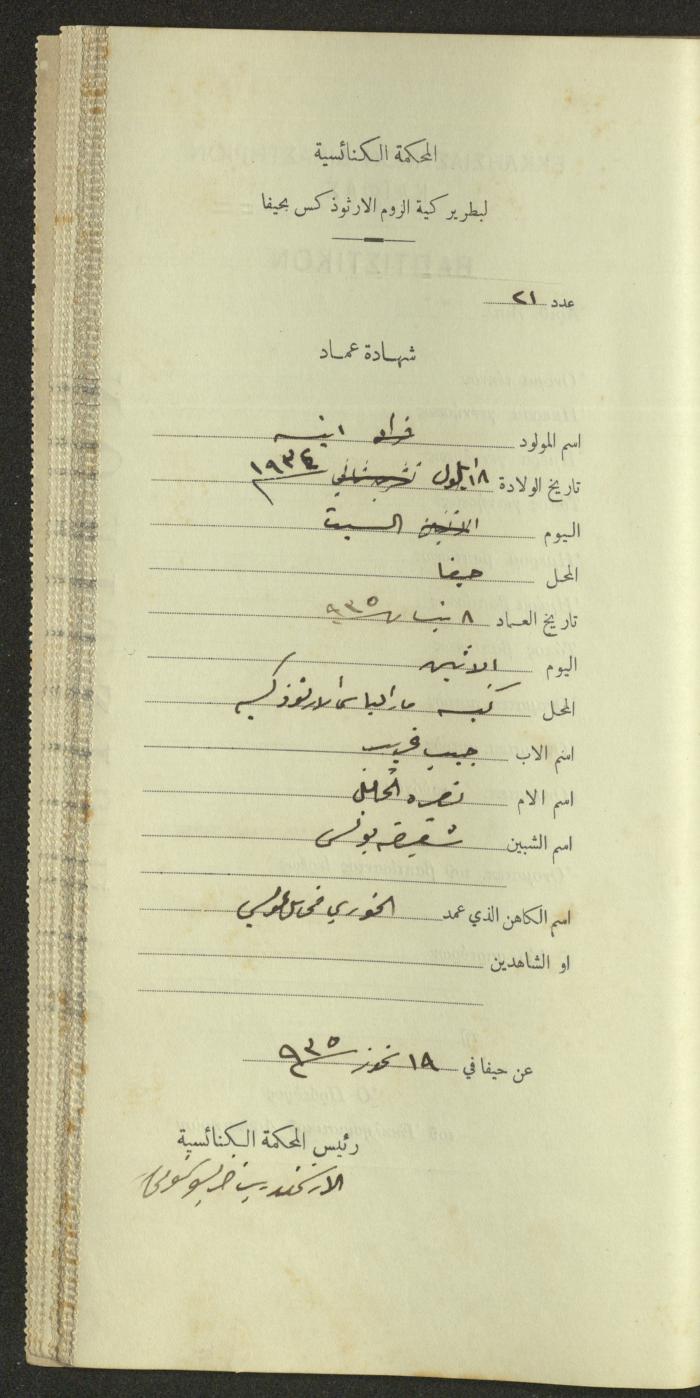 المحكمة الكنائسية
لبطريركية الروم الارثوذكس بحيفا
عدد ٢١
شهادة عماد
اسم المولود فؤاد
تاريخ الولادة ١٨ ايلول تشرين ثاني ١٩٣٤
اليوم الاثنين السبت
المحل حيفا
تاريخ العماد ٨ نيسان ٩٣٥
اليوم الاثنين
المحل كنيسة مار الياس الارثوذكسية
اسم الاب حبيب فريد
اسم الام نصره
اسم الشبين شفيقه يونس
اسم الكاهن الذي عمد الخوري
او الشاهدين
عن حيفا في ١٩ تموز ٩٣٥
رئيس المحكمة الكنائسية
الارشمندريت